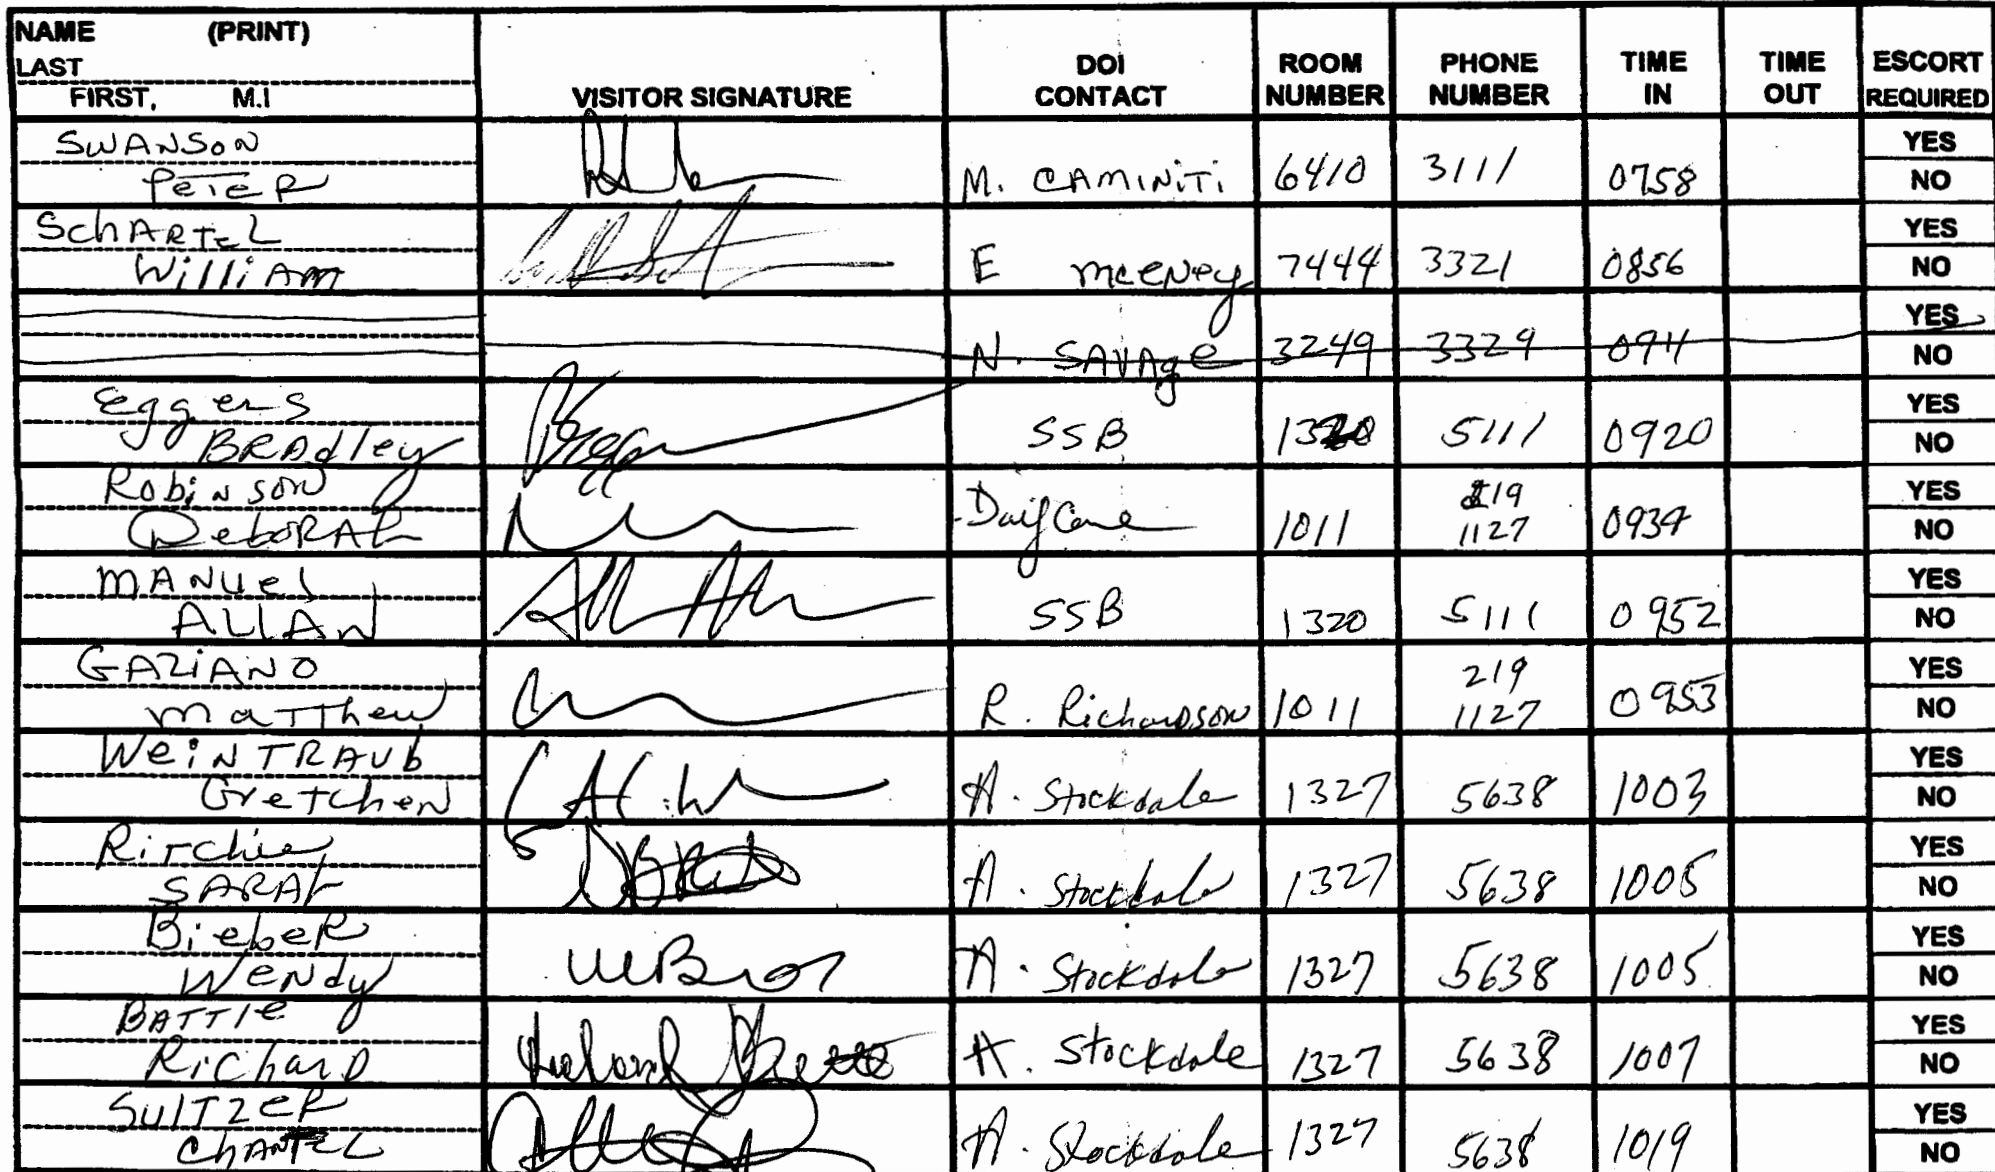 NAME (PRINT)
LAST
FIRST, M.I
VISITOR SIGNATURE
DOI CONTACT
ROOM NUMBER
PHONE NUMBER
TIME IN
TIME OUT
ESCORT REQUIRED
SWANSON
PeTeR
M. CAMINiTi 6410 3111 0758
YES
NO
SchARTeL
WilliAm
E mceNey 7444 3321 0856
YES
NO
N. SAVAge 3249 3329 0911
YES
NO
eggers
BRAdley
SSB 1320 5111 0920
YES
NO
RobiNson
DeboRAh
DayCare 1011 219 1127 0934
YES
NO
MANUel
ALLAN
SSB 1320 5111 0952
YES
NO
GAZiANO
maTThew
R. Richardson 1011 219 1127 0953
YES
NO
WeiNTRAUb
GreTcheN
A. Stockdale 1327 5638 1003
YES
NO
RiTchie
SARAh
A. Stockdale 1327 5638 1005
YES
NO
BiebeR
WeNdy
A. Stockdale 1327 5638 1005
YES
NO
BATTle
RicharD
A. Stockdale 1327 5638 1007
YES
NO
SulTzeR
ChANTeL
A. Stockdale 1327 5638 1019
YES
NO